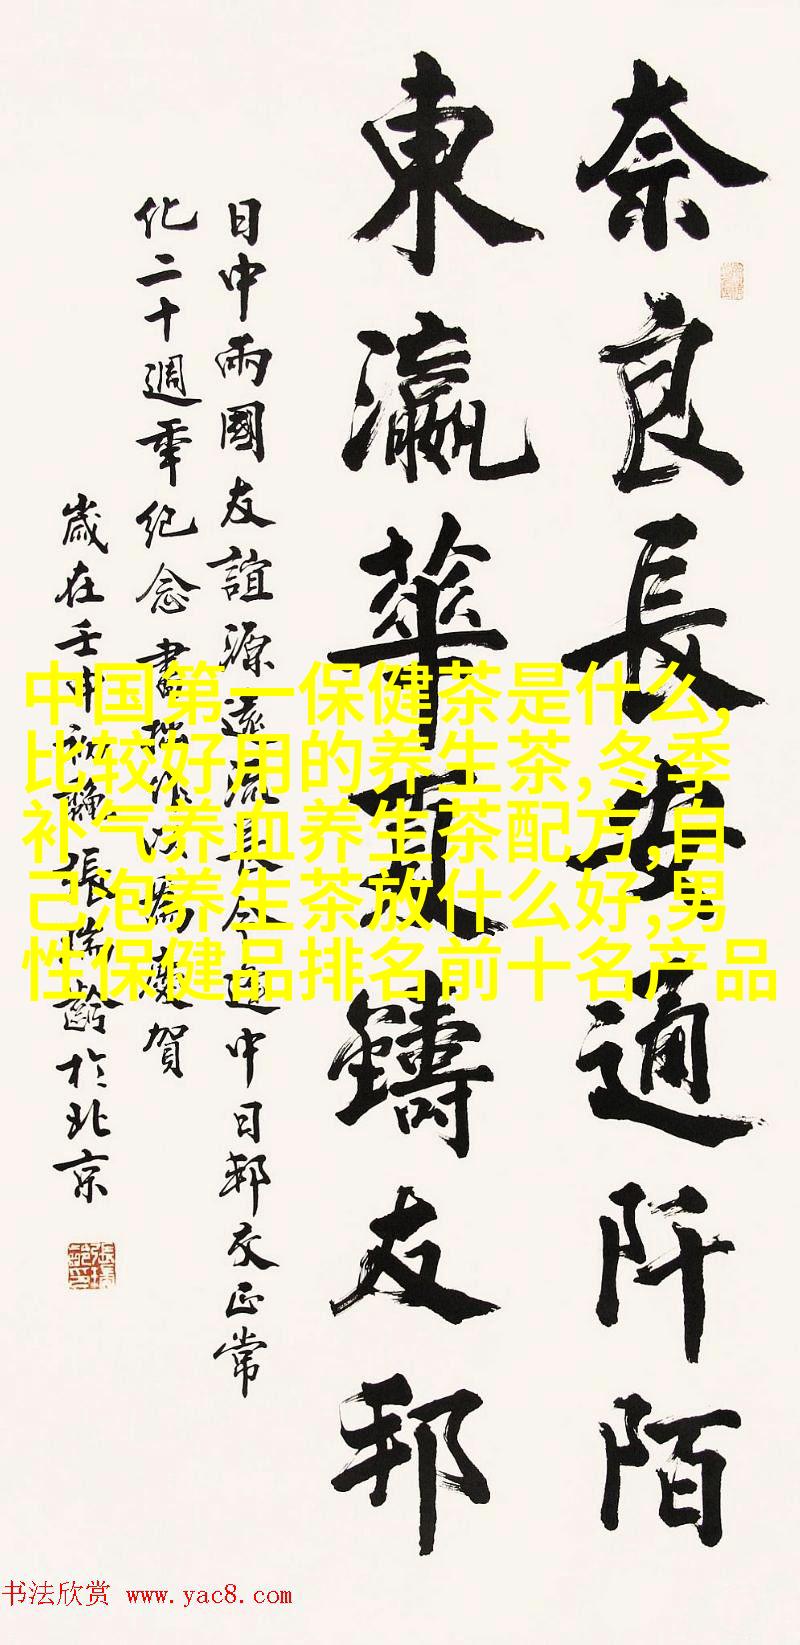 奈良長安通阡陌
東瀛華夏鑄友邦
日中兩國友誼源遠流長今逢中日邦交正常
化二十週年纪念書拙作以為慶賀
歲在壬申初魏張瑞齡於北京
中国第一保健茶是什么,
比较好用的养生茶,冬季
补气养血养生茶配方,自
己泡养生茶放什么好,男
性保健品排名前十名产品
书法欣赏 www.yac8.com